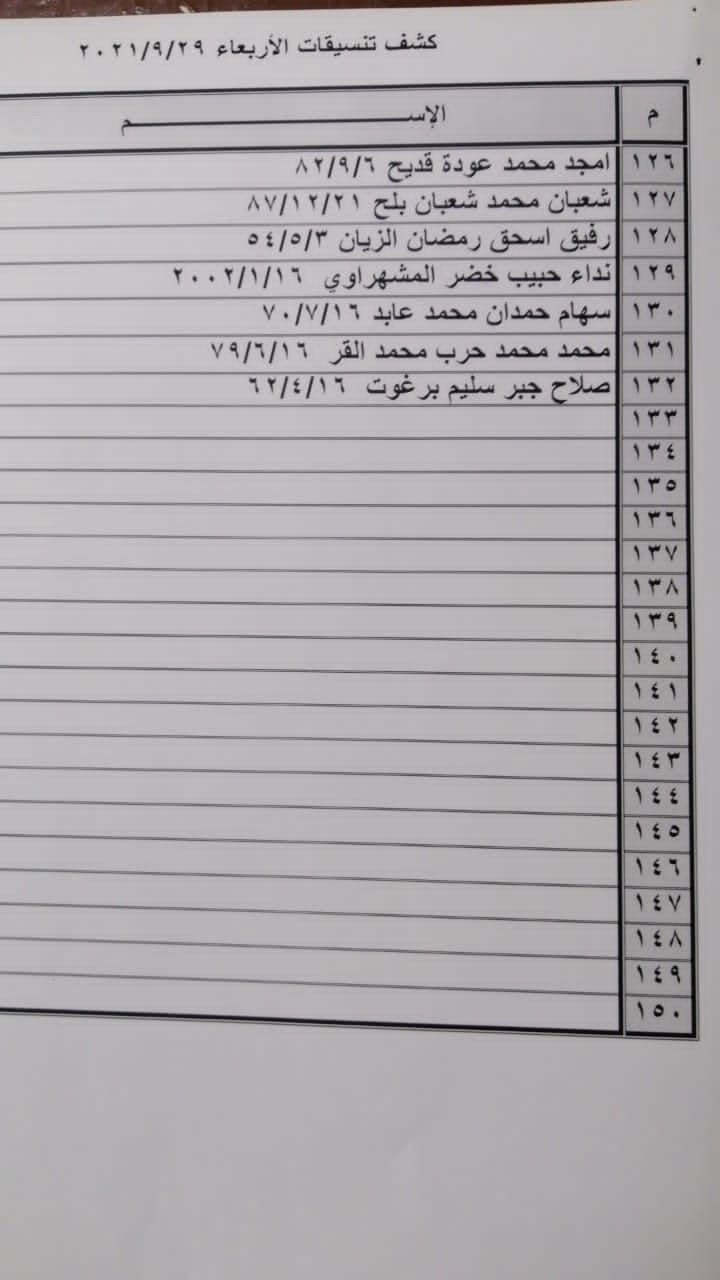 كشف تنسيقات الأربعاء ٢٠٢١/٩/٢٩
م الإســـــــــــــــــم
١٢٦ امجد محمد عودة قديح ٨٢/٩/٦
١٢٧ شعبان محمد شعبان بلح ٨٧/١٢/٢١
١٢٨ رفيق اسحق رمضان الزيان ٥٤/٥/٣
١٢٩ نداء حبيب خضر المشهراوي ٢٠٠٢/١/١٦
١٣٠ سهام حمدان محمد عابد ٧٠/٧/١٦
١٣١ محمد محمد حرب محمد القر ٧٩/٦/١٦
١٣٢ صلاح جبر سليم برغوت ٦٢/٤/١٦
١٣٣
١٣٤
١٣٥
١٣٦
١٣٧
١٣٨
١٣٩
١٤٠
١٤١
١٤٢
١٤٣
١٤٤
١٤٥
١٤٦
١٤٧
١٤٨
١٤٩
١٥٠